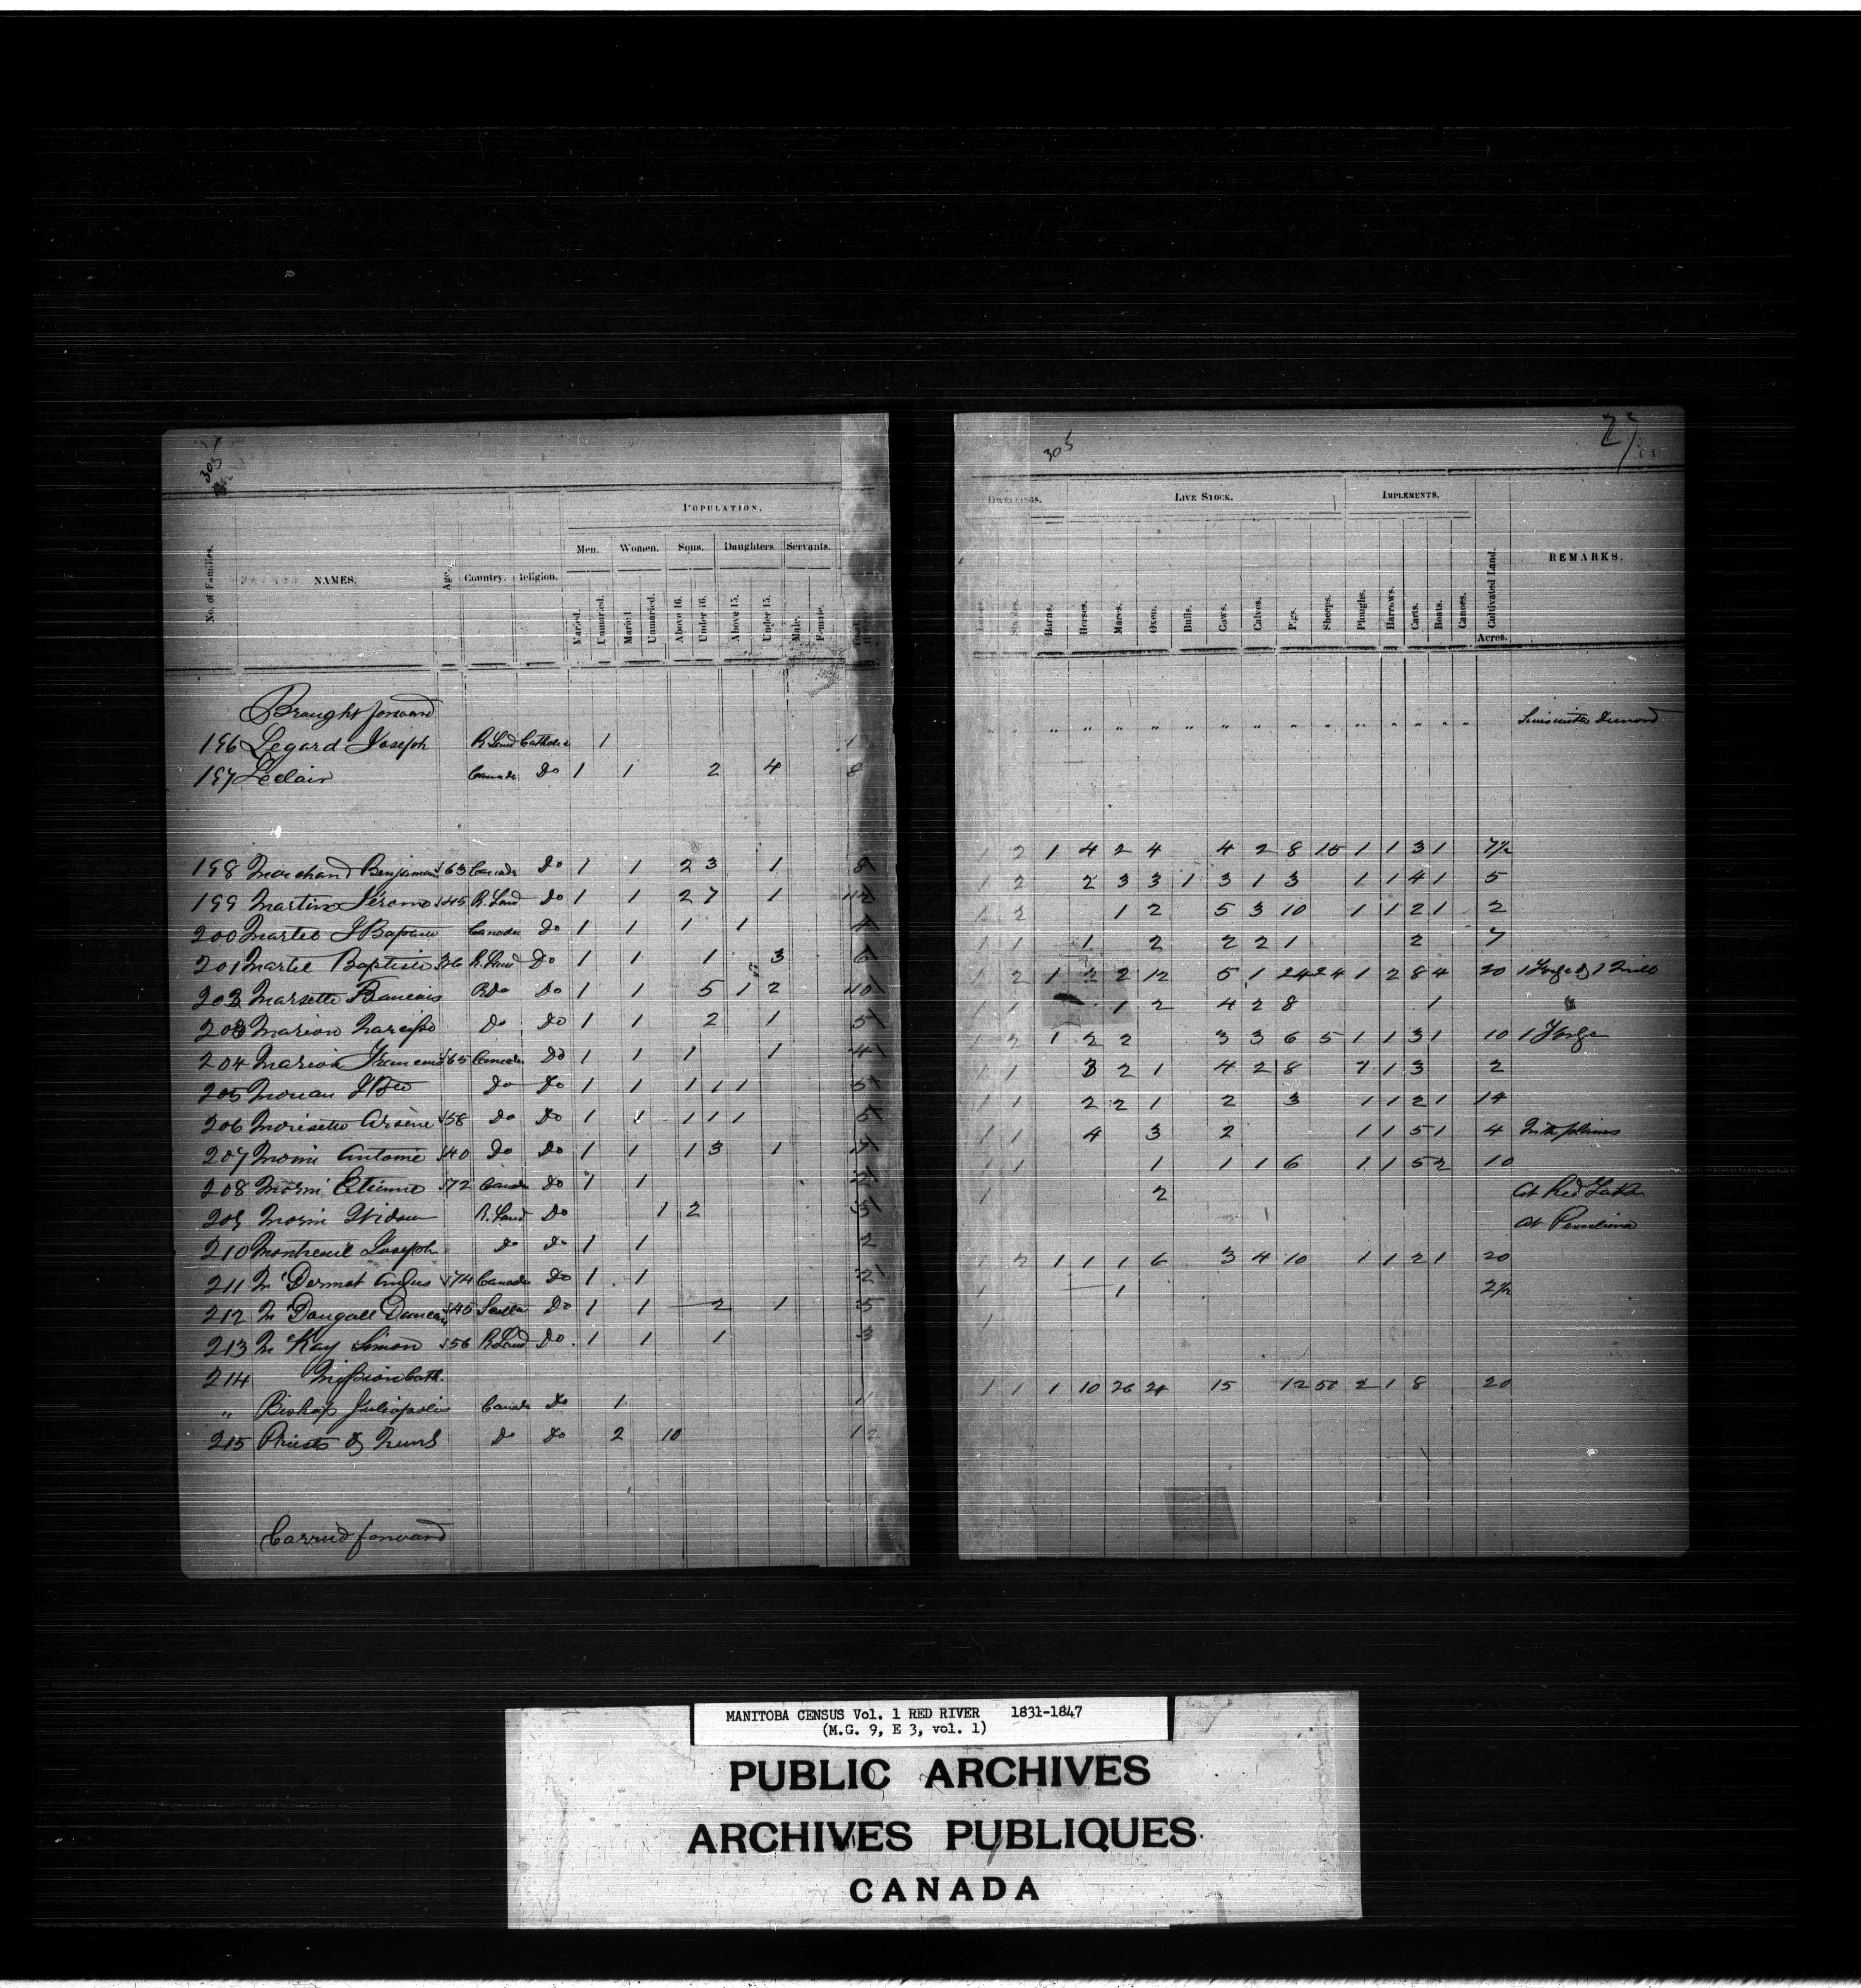 305
POPULATION.
Men. Women. Sons. Daughters Servants.
No. of Families. NAMES. Age. Country. Religion. Maried. Unmaried. Maried Unmaried. Above 16. Under 16. Above 15. Under 15. Male. Female.
Braught forward
196 Legard Joseph R Land Catholic 1 1
197 Leclair Canada Do 1 1 2 4 8
198 Marchand Benjamin 63 Canada Do 1 1 2 3 1 8
199 Martin Jérome 45 R. Land Do 1 1 2 7 1 12
200 Martel J Baptiste Canada Do 1 1 1 1 4
201 Martel Baptiste 36 R. Land Do 1 1 1 3 6
202 Marsette Francois R Do Do 1 1 5 1 2 10
203 Marion Narcisse Do Do 1 1 2 1 5
204 Marion Francois 65 Canada Do 1 1 1 1 4
205 J Bte Do Do 1 1 1 1 1 5
206 Morisette Arsène 58 Do Do 1 1 1 1 1 5
207 Morin Antoine 40 Do Do 1 1 1 3 1 7
208 Morin Etienne 72 Canada Do 1 1 2
209 Morin Widow R. Land Do 1 2 3
210 Montreuil Joseph Do Do 1 1 2
211 Mc Dermot Andrew 74 Canada Do 1 1 2
212 Mc Dougall Duncan 45 Do 1 1 2 1 5
213 Mc Kay Simon 56 R Land Do 1 1 1 3
214 Mission Cath.
" Bishop Juliopolis Canada Do 1 1
215 Priests & Nuns Do Do 2 10 12
Carried forward
305
27
DWELLINGS. LIVE STOCK. IMPLEMENTS.
Stables. Barns. Horses. Mares. Oxen. Bulls. Cows. Calves. Pigs. Sheeps. Ploughs. Harrows. Carts. Boats. Canoes. Cultivated Land. REMARKS.
Acres.
" " " " " " " " " " " " " "
1 2 1 4 2 4 4 2 8 15 1 1 3 1 7½
1 2 2 3 3 1 3 1 3 1 1 4 1 5
1 2 1 2 5 3 10 1 1 2 1 2
1 1 1 2 2 2 1 2 7
1 2 1 2 2 12 5 1 24 24 1 2 8 4 20 1 Forge & 1 Mill
1 1 1 2 4 2 8 1
1 2 1 2 2 3 3 6 5 1 1 3 1 10 1 Forge
1 1 3 2 1 4 2 8 1 1 3 2
1 1 2 2 1 2 3 1 1 2 1 14
1 1 4 3 2 1 1 5 1 4 In the plains
1 1 1 1 1 6 1 1 5 2 10
1 2 At Red Lake
At Pembina
1 2 1 1 1 6 3 4 10 1 1 2 1 20
1 1 2½
1
1 1 1 10 26 21 15 12 50 2 1 8 20
MANITOBA CENSUS Vol. 1 RED RIVER 1831-1847
(M.G. 9, E 3, vol. 1)
PUBLIC ARCHIVES
ARCHIVES PUBLIQUES
CANADA